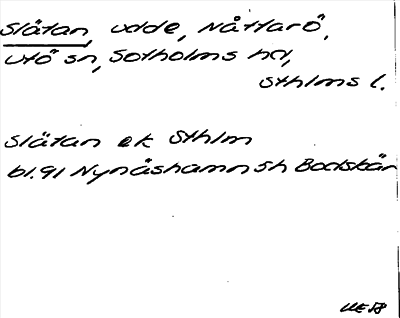 Slätan, udde, Nåttarö,
Utö sn, Sotholms hd,
Sthlms l.
Slätan ek Sthlm
bl. 91 Nynäshamn Sh Bodskär